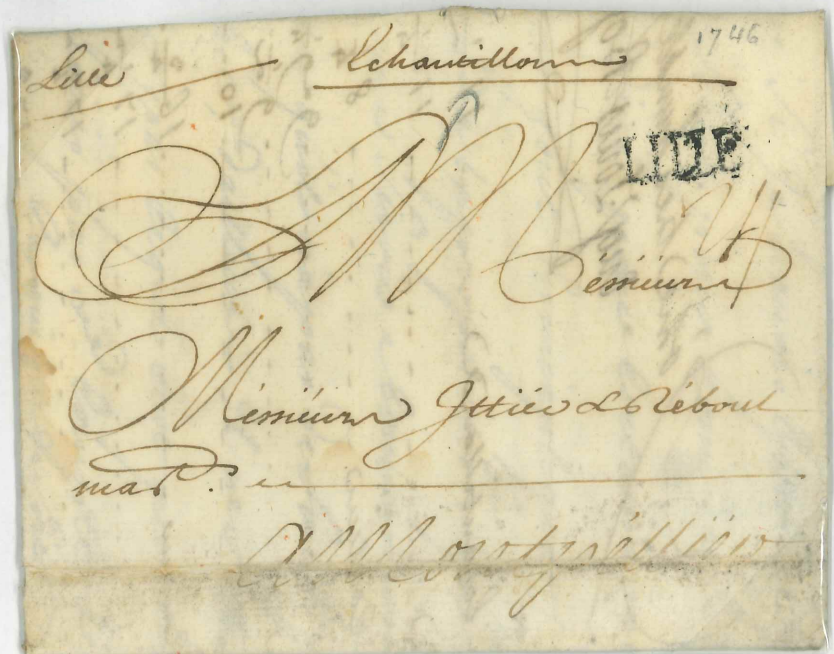 Lille Echantillons 1746
LILLE
A Messieurs
Messieurs Ittier & Réboul
mard.
A Montpéllier